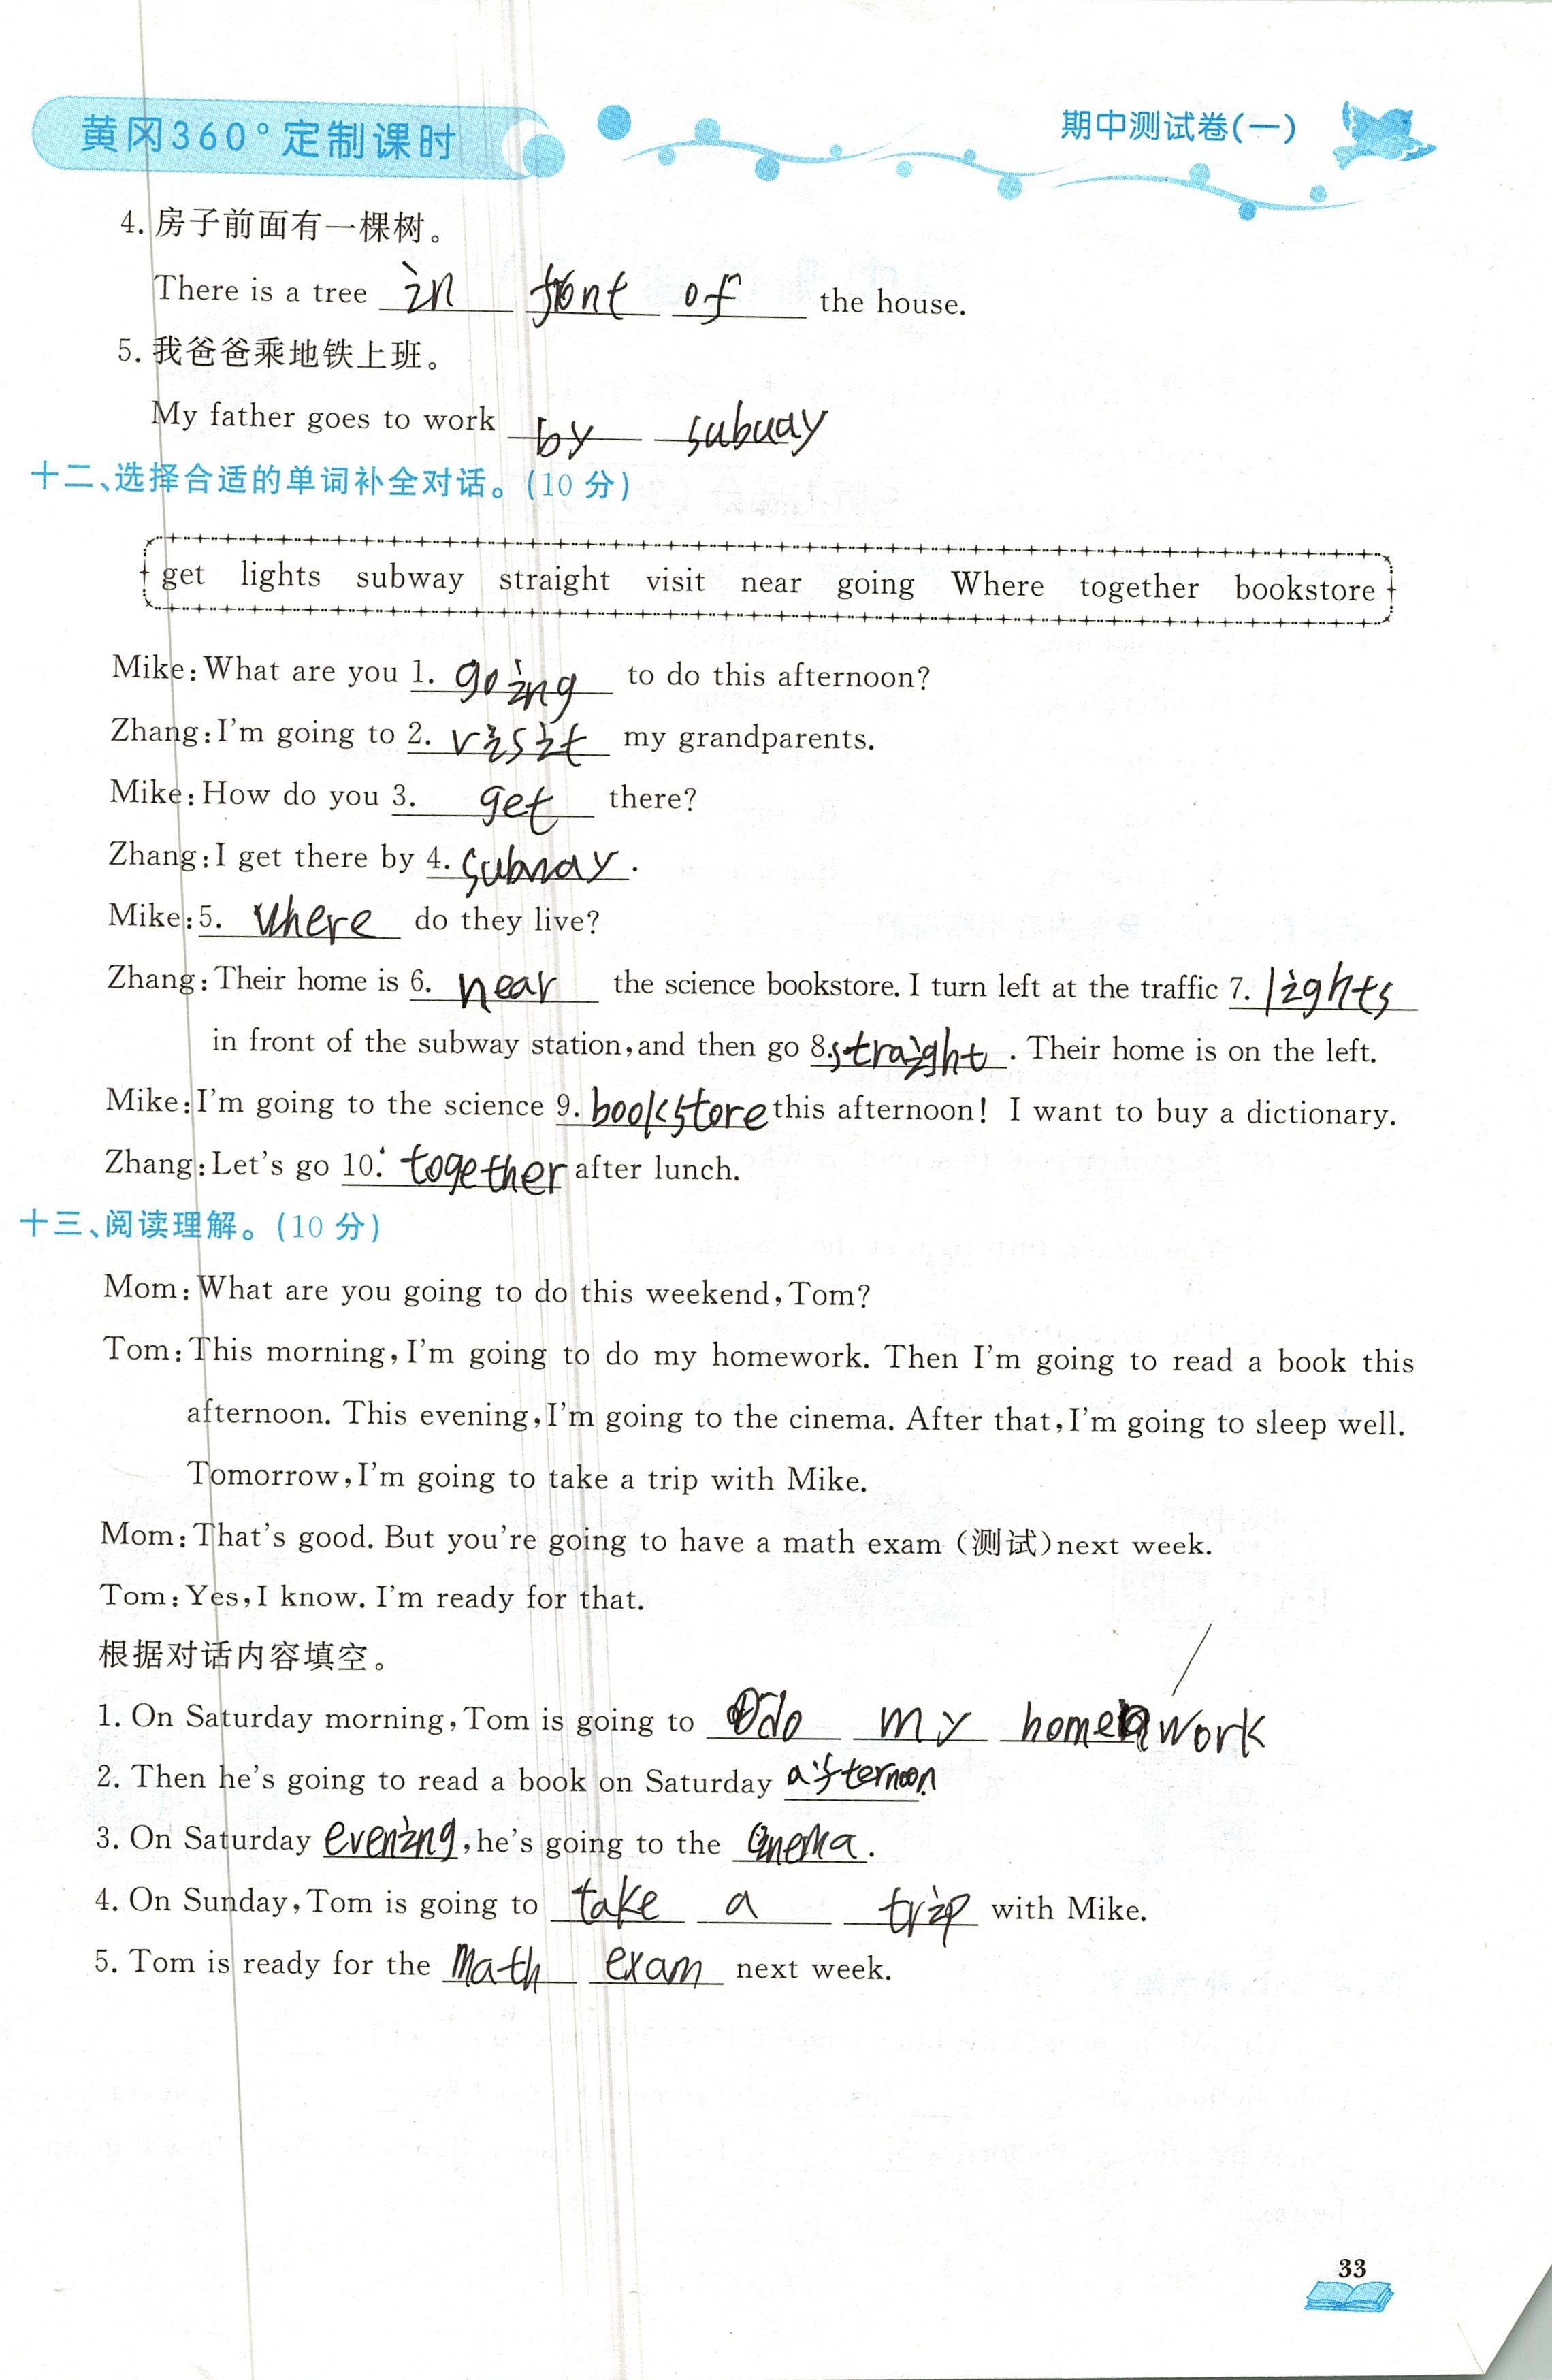 黄冈360°定制课时
期中测试卷(一)
4. 房子前面有一棵树。
There is a tree in font of the house.
5. 我爸爸乘地铁上班。
My father goes to work by subway
十二、选择合适的单词补全对话。(10 分)
get lights subway straight visit near going Where together bookstore
Mike: What are you 1. going to do this afternoon?
Zhang: I'm going to 2. visit my grandparents.
Mike: How do you 3. get there?
Zhang: I get there by 4. subway.
Mike: 5. where do they live?
Zhang: Their home is 6. near the science bookstore. I turn left at the traffic 7. lights
in front of the subway station, and then go 8. straight. Their home is on the left.
Mike: I'm going to the science 9. bookstore this afternoon! I want to buy a dictionary.
Zhang: Let's go 10. together after lunch.
十三、阅读理解。(10 分)
Mom: What are you going to do this weekend, Tom?
Tom: This morning, I'm going to do my homework. Then I'm going to read a book this
afternoon. This evening, I'm going to the cinema. After that, I'm going to sleep well.
Tomorrow, I'm going to take a trip with Mike.
Mom: That's good. But you're going to have a math exam (测试) next week.
Tom: Yes, I know. I'm ready for that.
根据对话内容填空。
1. On Saturday morning, Tom is going to do my homework
2. Then he's going to read a book on Saturday afternoon.
3. On Saturday evening, he's going to the cinema.
4. On Sunday, Tom is going to take a trip with Mike.
5. Tom is ready for the math exam next week.
33